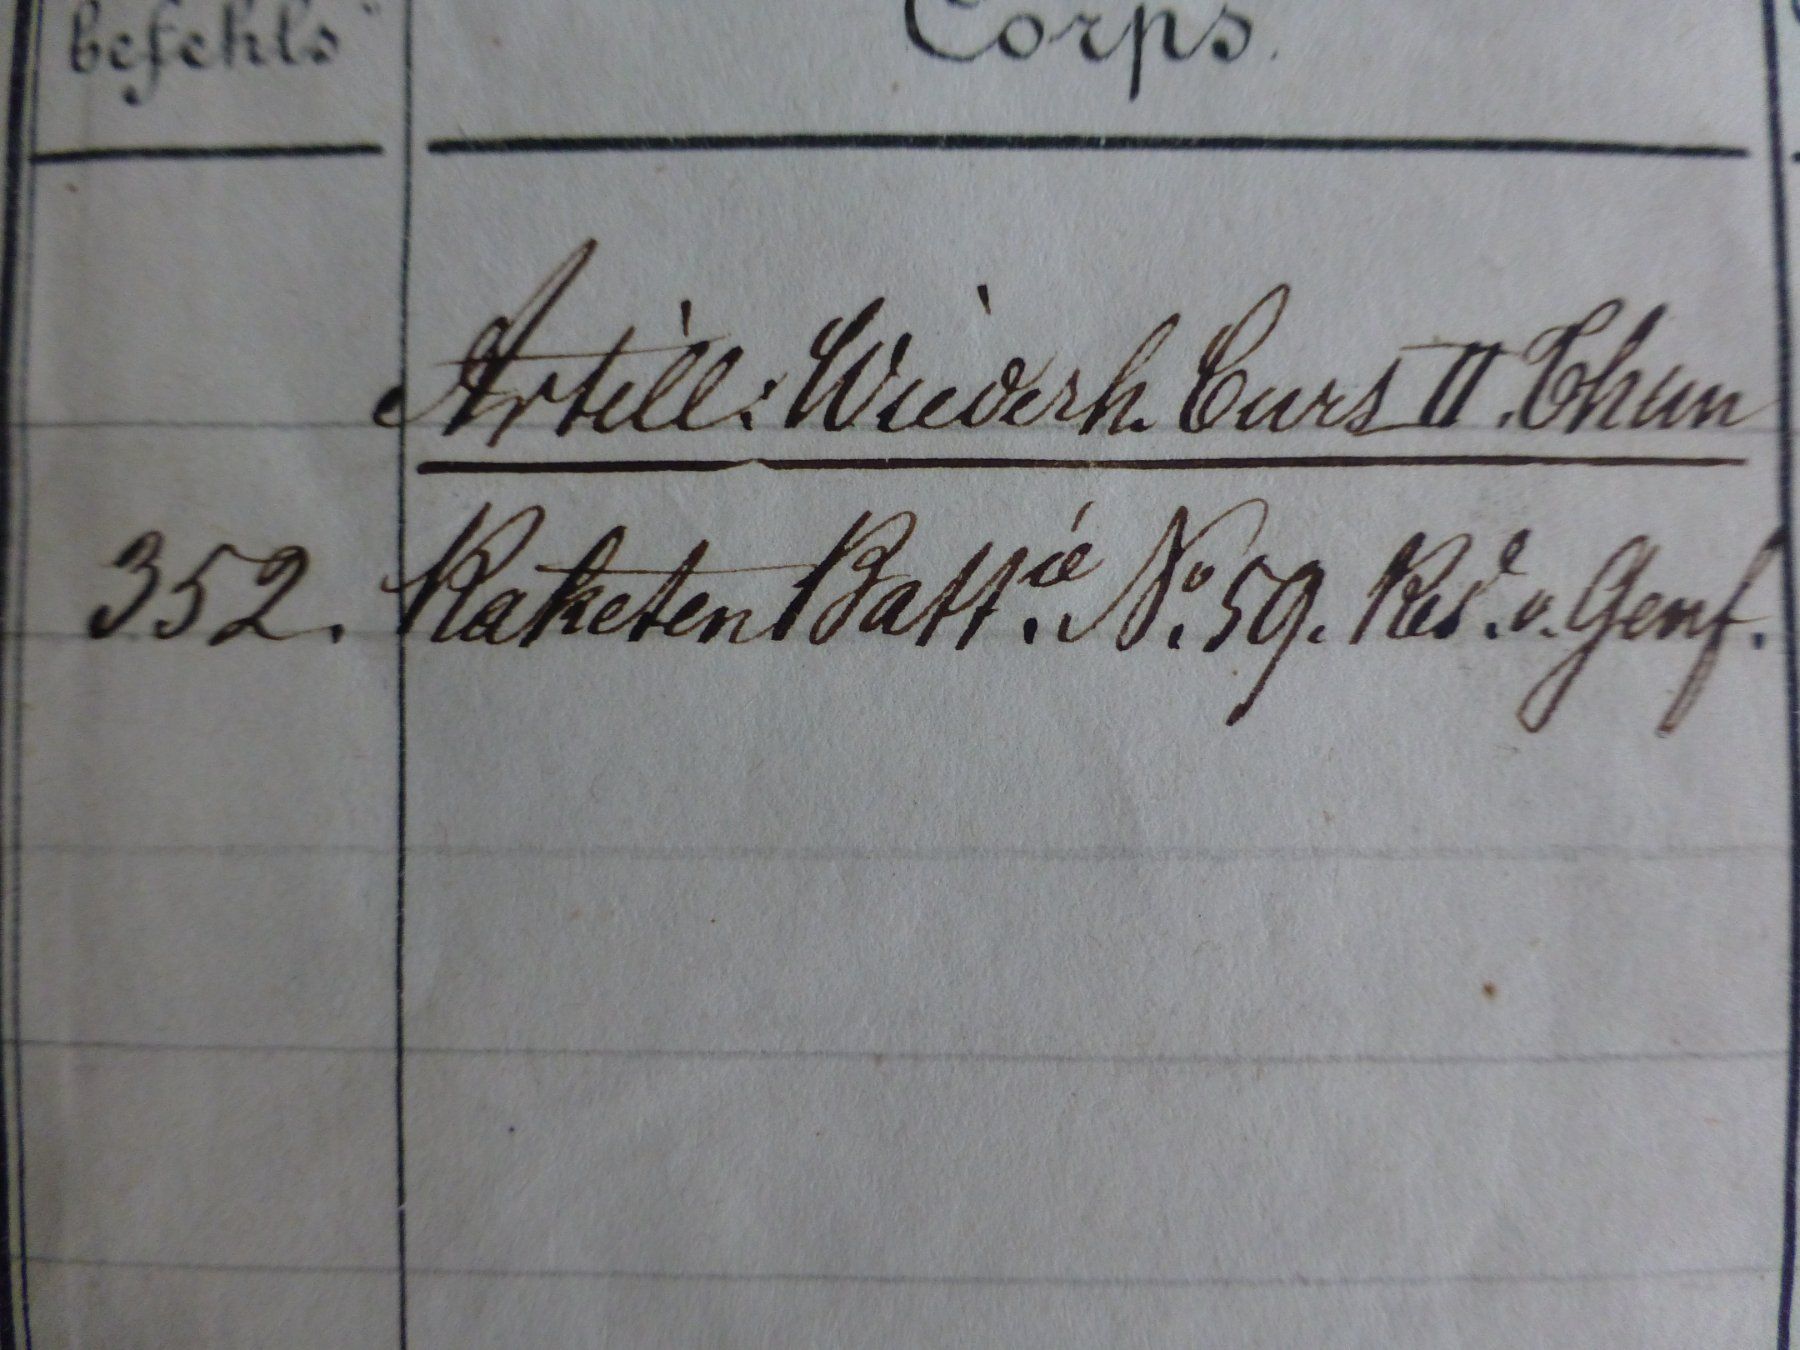 befehls" Corps.
Artill: Wiederh. Curs II. Thun
352. Raketen Batt.ie No. 59. Res. v. Genf.